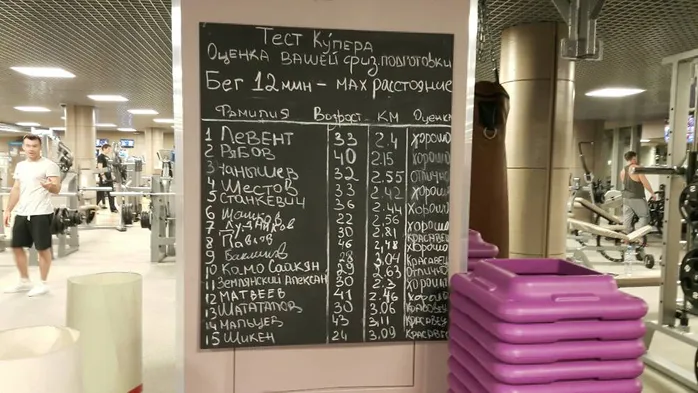 Тест Купера
Оценка вашей физ.подготовки
Бег 12 мин – мах расстояние
Фамилия Возраст КМ Оценк
1 Левент 33 2.4 хорошо
2 Рябов 40 2.15 хорошо
3 Чанышев 32 2.55 отлично
4 Шестов 33 2.42 хорошо
5 Станкевич 36 2.44 хорошо
6 22 2.56 хорошо
7 30 2.81 красавец
8 Павлов 46 2.48 хорошо
9 28 3.04 красавец
10 29 2.63 отлично
11 Землянский Александ 30 2.3 хорошо
12 Матвеев 41 2.46 хорошо
13 30 3.06 красавец
14 Мальцев 43 3.11 красавец
15 Шикен 24 3.09 красавец